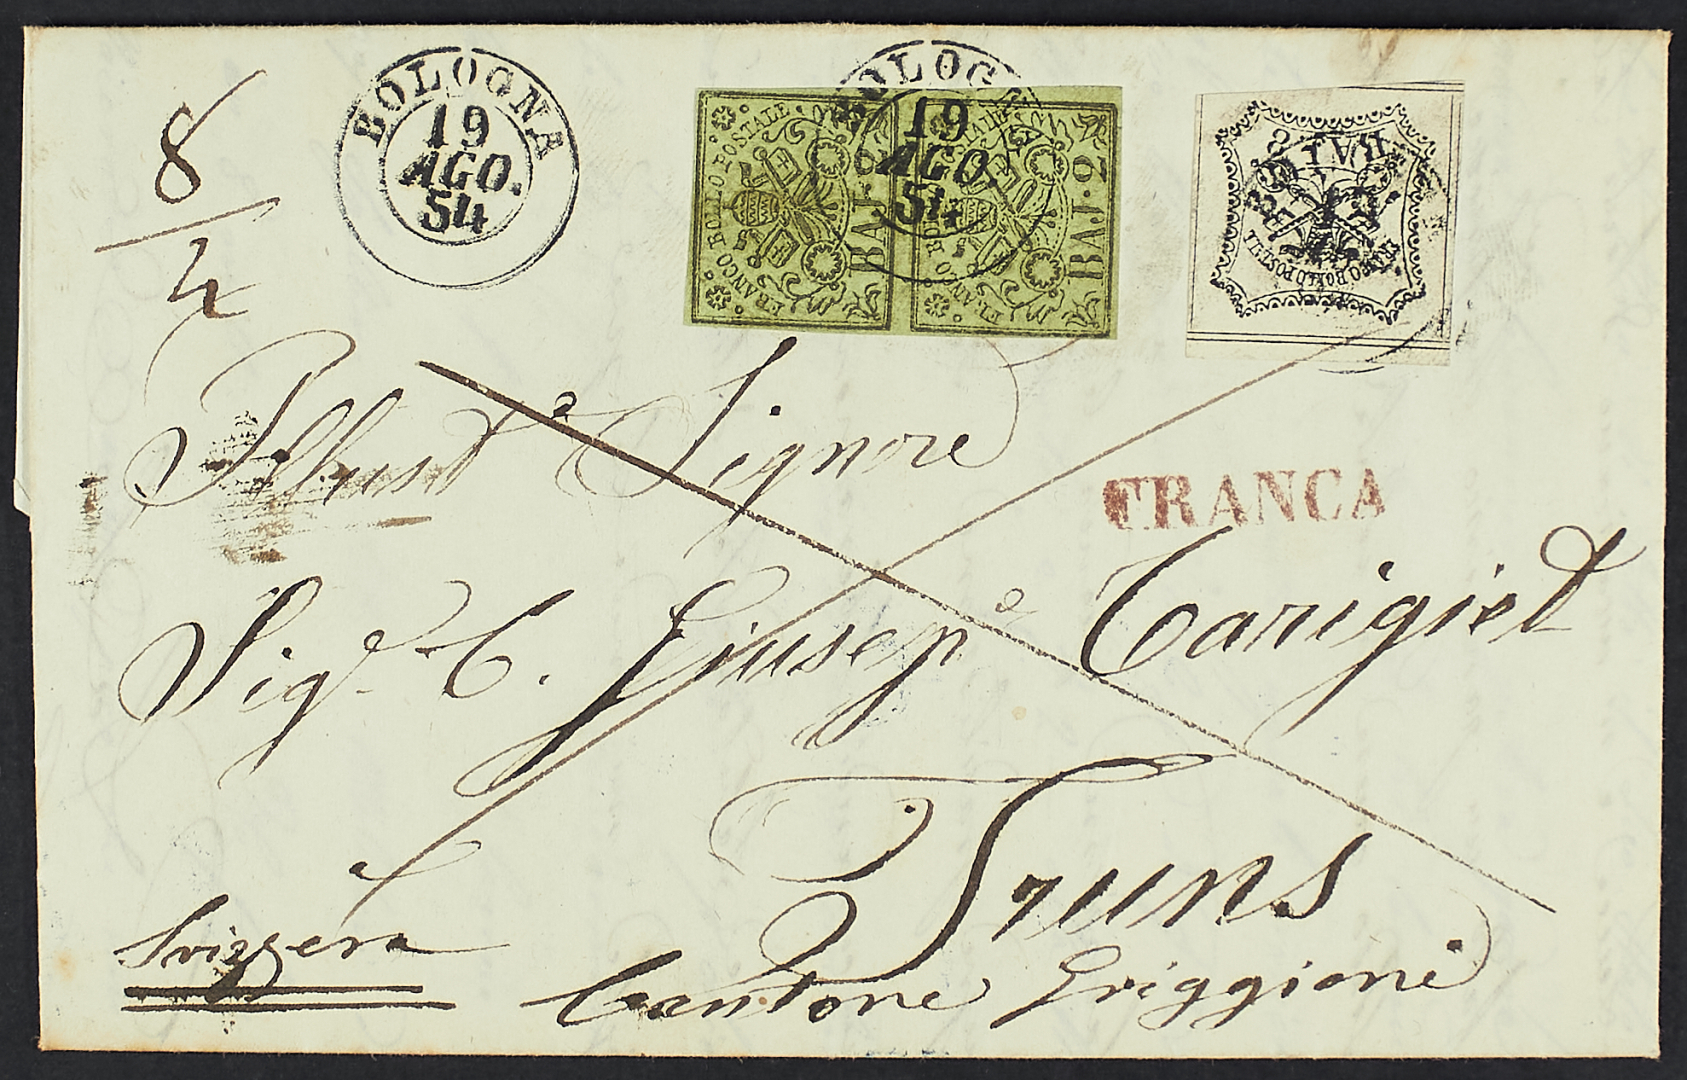 8
4
BOLOGNA
19
AGO.
54
BOLOG
19
AGO.
54
FRANCO BOLLO POSTALE
BAJ.
FRANCO BO
BAJ. 2
BAJ 8
FRANCO BOLLO POSTALE
Illust.e Signore
FRANCA
Sigr. C. Giusepe Carigiet
Truns
Svizzera
Cantone Griggioni